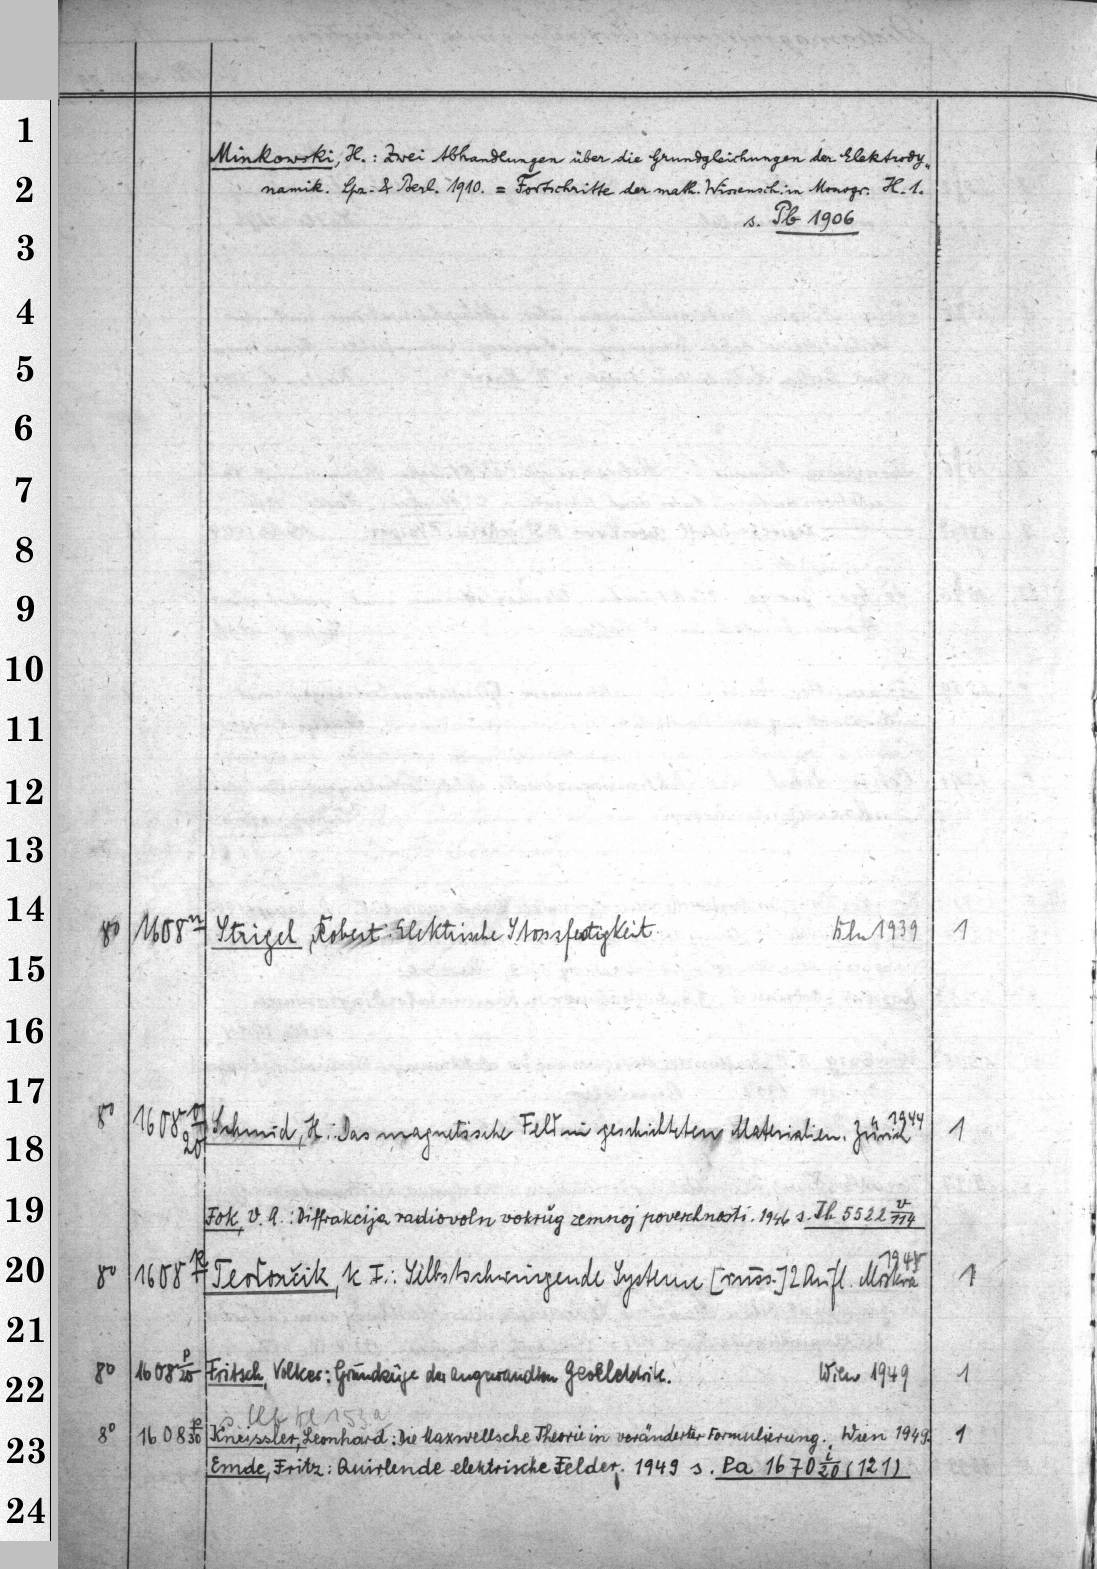 1
Minkowski, H.: Zwei Abhandlungen über die Grundgleichungen der Elektrody-
2
namik. Lpz. & Berl. 1910. = Fortschritte der math. Wissensch. in Monogr. H. 1.
s. Pb 1906
3
4
5
6
7
8
9
10
11
12
13
14
8° 1608 n Strigel, Robert: Elektrische Stossfestigkeit Bln 1939 1
15
16
17
8° 1608 20 Schmid, H.: Das magnetische Feld in geschichteten Materialien. Zürich 1944 1
18
19
Fok, V. A.: Diffrakcija radiovoln vokrug zemnoj poverchnosti. 1946 s. Ib 5522 v/714
20
8° 1608 Teodorčik, K. F.: Selbstschwingende Systeme [russ.] 2 Aufl. Moskva 1948 1
21
22
8° 1608 p/25 Fritsch, Volker: Grundzüge der angewandten Geoelektrik. Wien 1949 1
23
8° 1608 p/30 Kneissler, Leonhard: Die Maxwellsche Theorie in veränderter Formulierung. Wien 1949. 1
Emde, Fritz: Quirlende elektrische Felder. 1949 s. Pa 1670 i/20 (121)
24